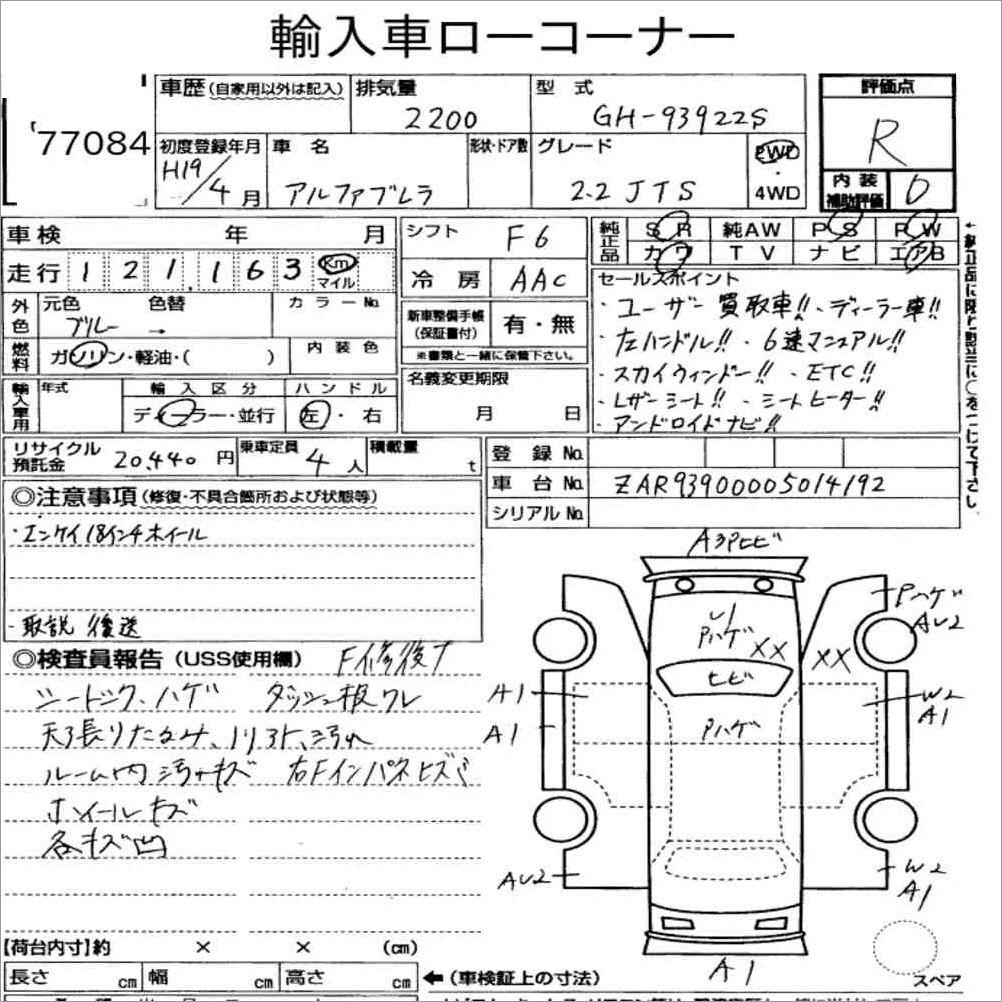 輸入車ローコーナー
77084
車歴(自家用以外は記入)
排気量
2200
型式
GH-93922S
評価点
R
初度登録年月
H19/4月
車名
アルファブレラ
形状・ドア数
グレード
2.2 JTS
2WD
・
4WD
内装
補助評価
D
車検 年 月
シフト F6
純正品
SR 純AW PS PW
カワ TV ナビ エアB
走行 121,163 Km マイル
冷房 AAC
セールスポイント
・ユーザー買取車!!・ディーラー車!!
・左ハンドル!!・6速マニュアル!!
・スカイウィンドー!!・ETC!!
・レザーシート!!・シートヒーター!!
・アンドロイドナビ!!
外色
元色 色替 カラーNo.
ブルー →
新車整備手帳
(保証書付)
有・無
※書類と一緒に保管下さい。
燃料
ガソリン・軽油・( )
内装色
名義変更期限
月 日
輸入車用
年式
輸入区分
ハンドル
ディーラー・並行
左・右
リサイクル
預託金
20,440円
乗車定員
4人
積載量
t
登録No.
車台No. ZAR93900005014192
シリアルNo.
◎注意事項(修復・不具合箇所および状態等)
・エンケイ18インチホイール
・取説後送
◎検査員報告(USS使用欄) F修復ナ
シートシワ、ハゲ ダッシュ板ワレ
天張りたるみ、ノリヨト、汚れ
ルーム内汚キズ 右Fインパネヒズミ
ホイールキズ
各キズ凹
A3Pヒビ
Pハゲ
AU2
U1
Pハゲ
XX
XX
ヒビ
Pハゲ
A1
A1
W2
A1
AU2
W2
A1
A1
スペア
【荷台内寸】約 × × (cm)
長さ cm 幅 cm 高さ cm
←(車検証上の寸法)